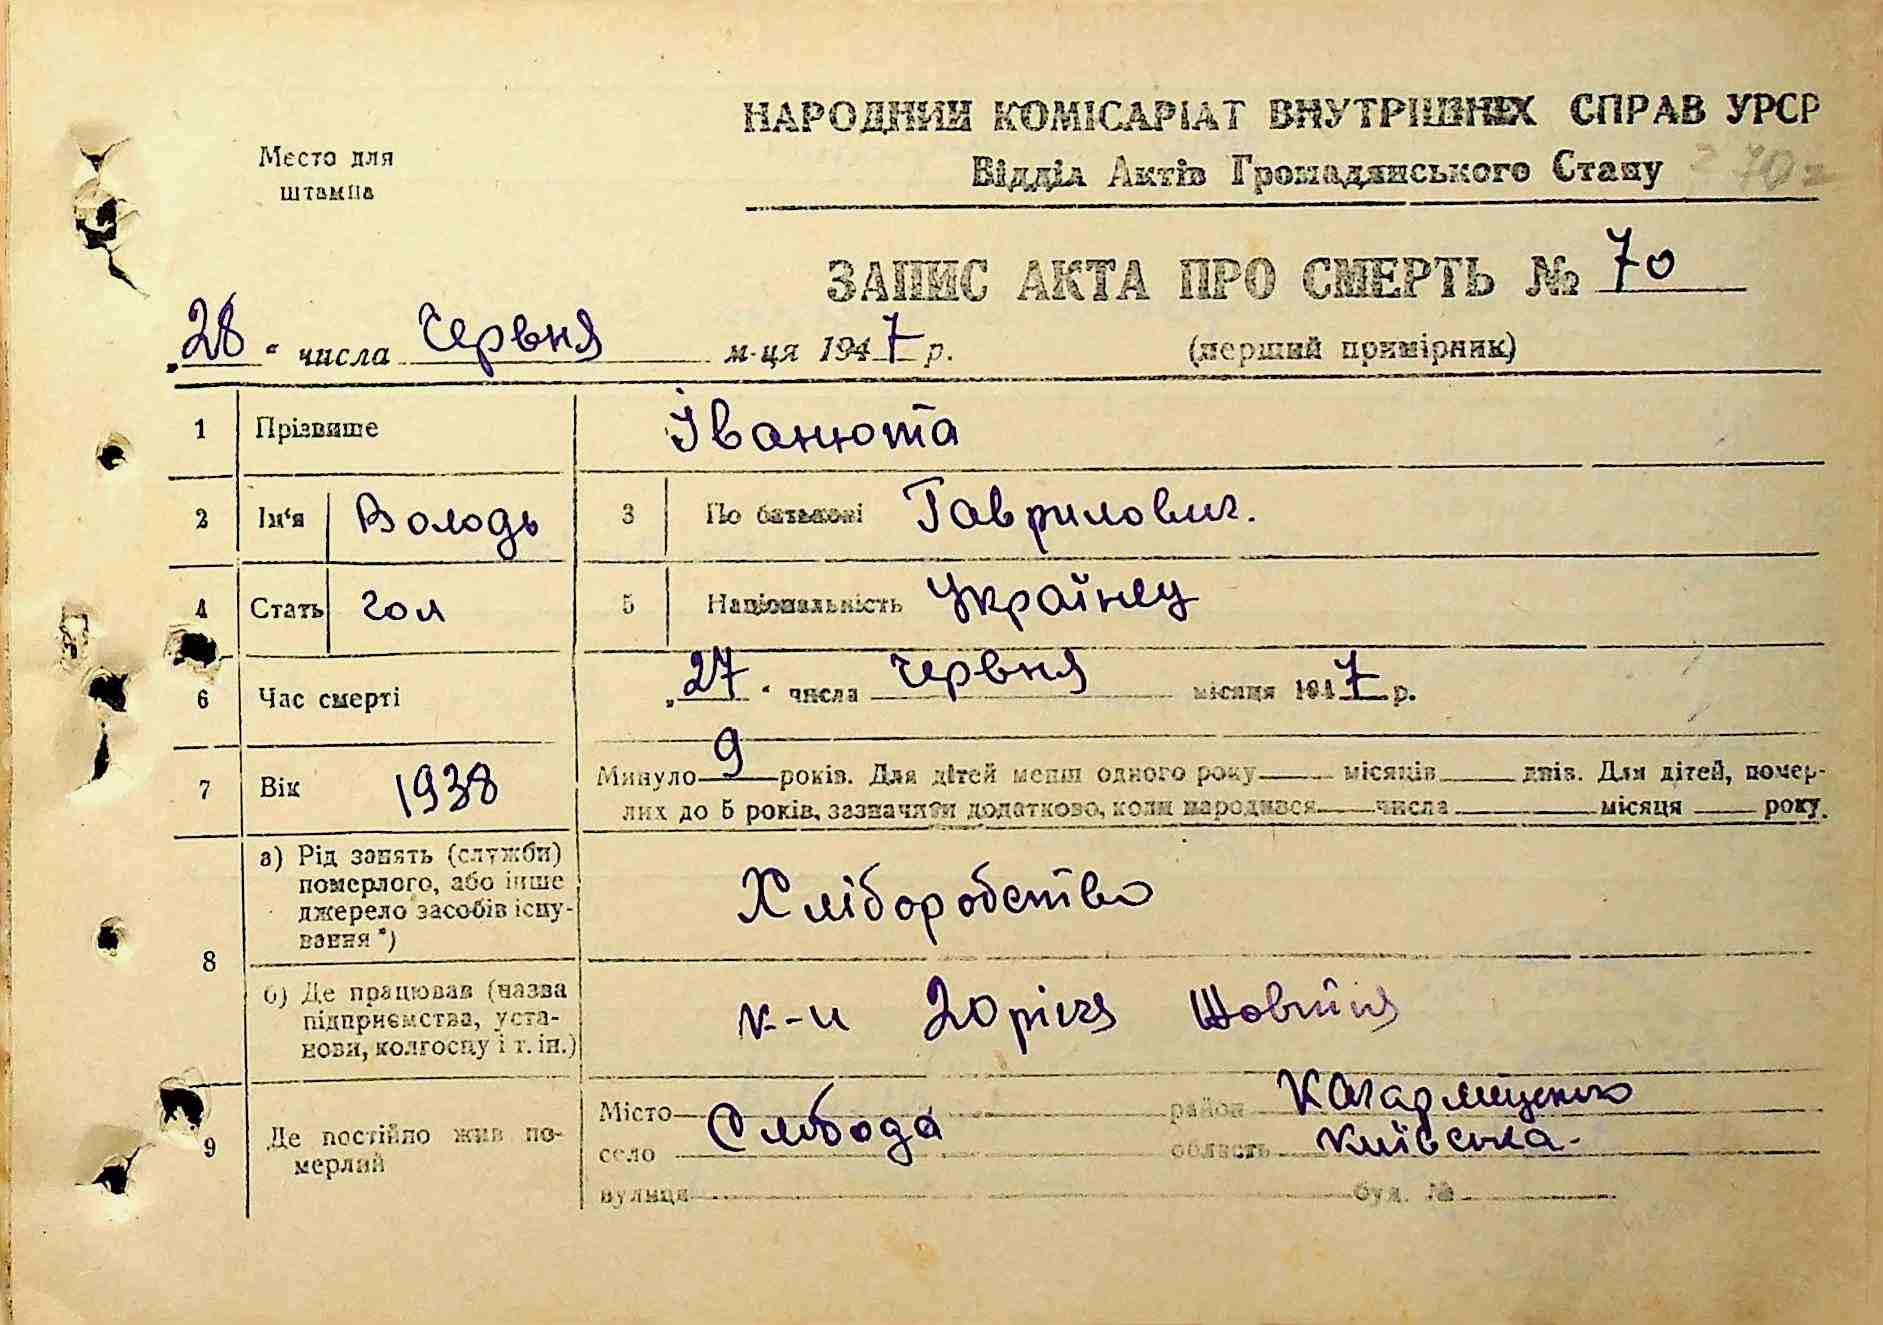 Место для
штампа
НАРОДНИЙ КОМІСАРІАТ ВНУТРІШНІХ СПРАВ УРСР
Відділ Актів Громадянського Стану
ЗАПИС АКТА ПРО СМЕРТЬ № 70
„28“ числа Червня м-ця 1947 р. (перший примірник)
1 Прізвише Іванюта
2 Ім‘я Володь 3 По батькові Гаврилович.
4 Стать чол 5 Національність Українец
6 Час смерті „27“ числа червня місяця 1947 р.
7 Вік 1938 Минуло 9 років. Для дітей менш одного року місяців днів. Для дітей, помер-
лих до 5 років, зазначити додатково, коли народився числа місяця року.
8 а) Рід занять (служби)
померлого, або інше
джерело засобів існу-
вання *)
Хліборобство
б) Де працював (назва
підприємства, уста-
нови, колгоспу і т. ін.)
к-п 20 річя Жовтня
9 Де постійно жив по-
мерлий
Місто район
село Слобода область Київська.
вулиця буд. №